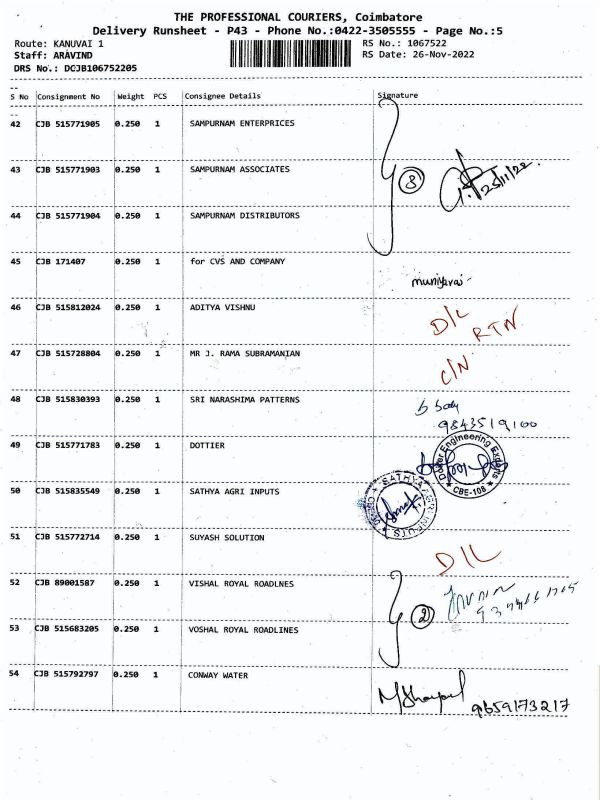 THE PROFESSIONAL COURIERS, Coimbatore
Delivery Runsheet - P43 - Phone No.:0422-3505555 - Page No.:5
Route: KANUVAI 1 RS No.: 1067522
Staff: ARAVIND RS Date: 26-Nov-2022
DRS No.: DCJB106752205
S No Consignment No Weight PCS Consignee Details Signature
42 CJB 515771905 0.250 1 SAMPURNAM ENTERPRICES
43 CJB 515771903 0.250 1 SAMPURNAM ASSOCIATES 3 25/11/22
44 CJB 515771904 0.250 1 SAMPURNAM DISTRIBUTORS
45 CJB 171407 0.250 1 for CVS AND COMPANY
46 CJB 515812024 0.250 1 ADITYA VISHNU D/L RTN
47 CJB 515728804 0.250 1 MR J. RAMA SUBRAMANIAN C/N
48 CJB 515830393 0.250 1 SRI NARASHIMA PATTERNS
9843519100
49 CJB 515771783 0.250 1 DOTTIER Engineering CBE-108
50 CJB 515835549 0.250 1 SATHYA AGRI INPUTS SATHYA AGRI INPUTS
51 CJB 515772714 0.250 1 SUYASH SOLUTION D/L
52 CJB 89001587 0.250 1 VISHAL ROYAL ROADLNES 2
53 CJB 515683205 0.250 1 VOSHAL ROYAL ROADLINES
54 CJB 515792797 0.250 1 CONWAY WATER 9659173217